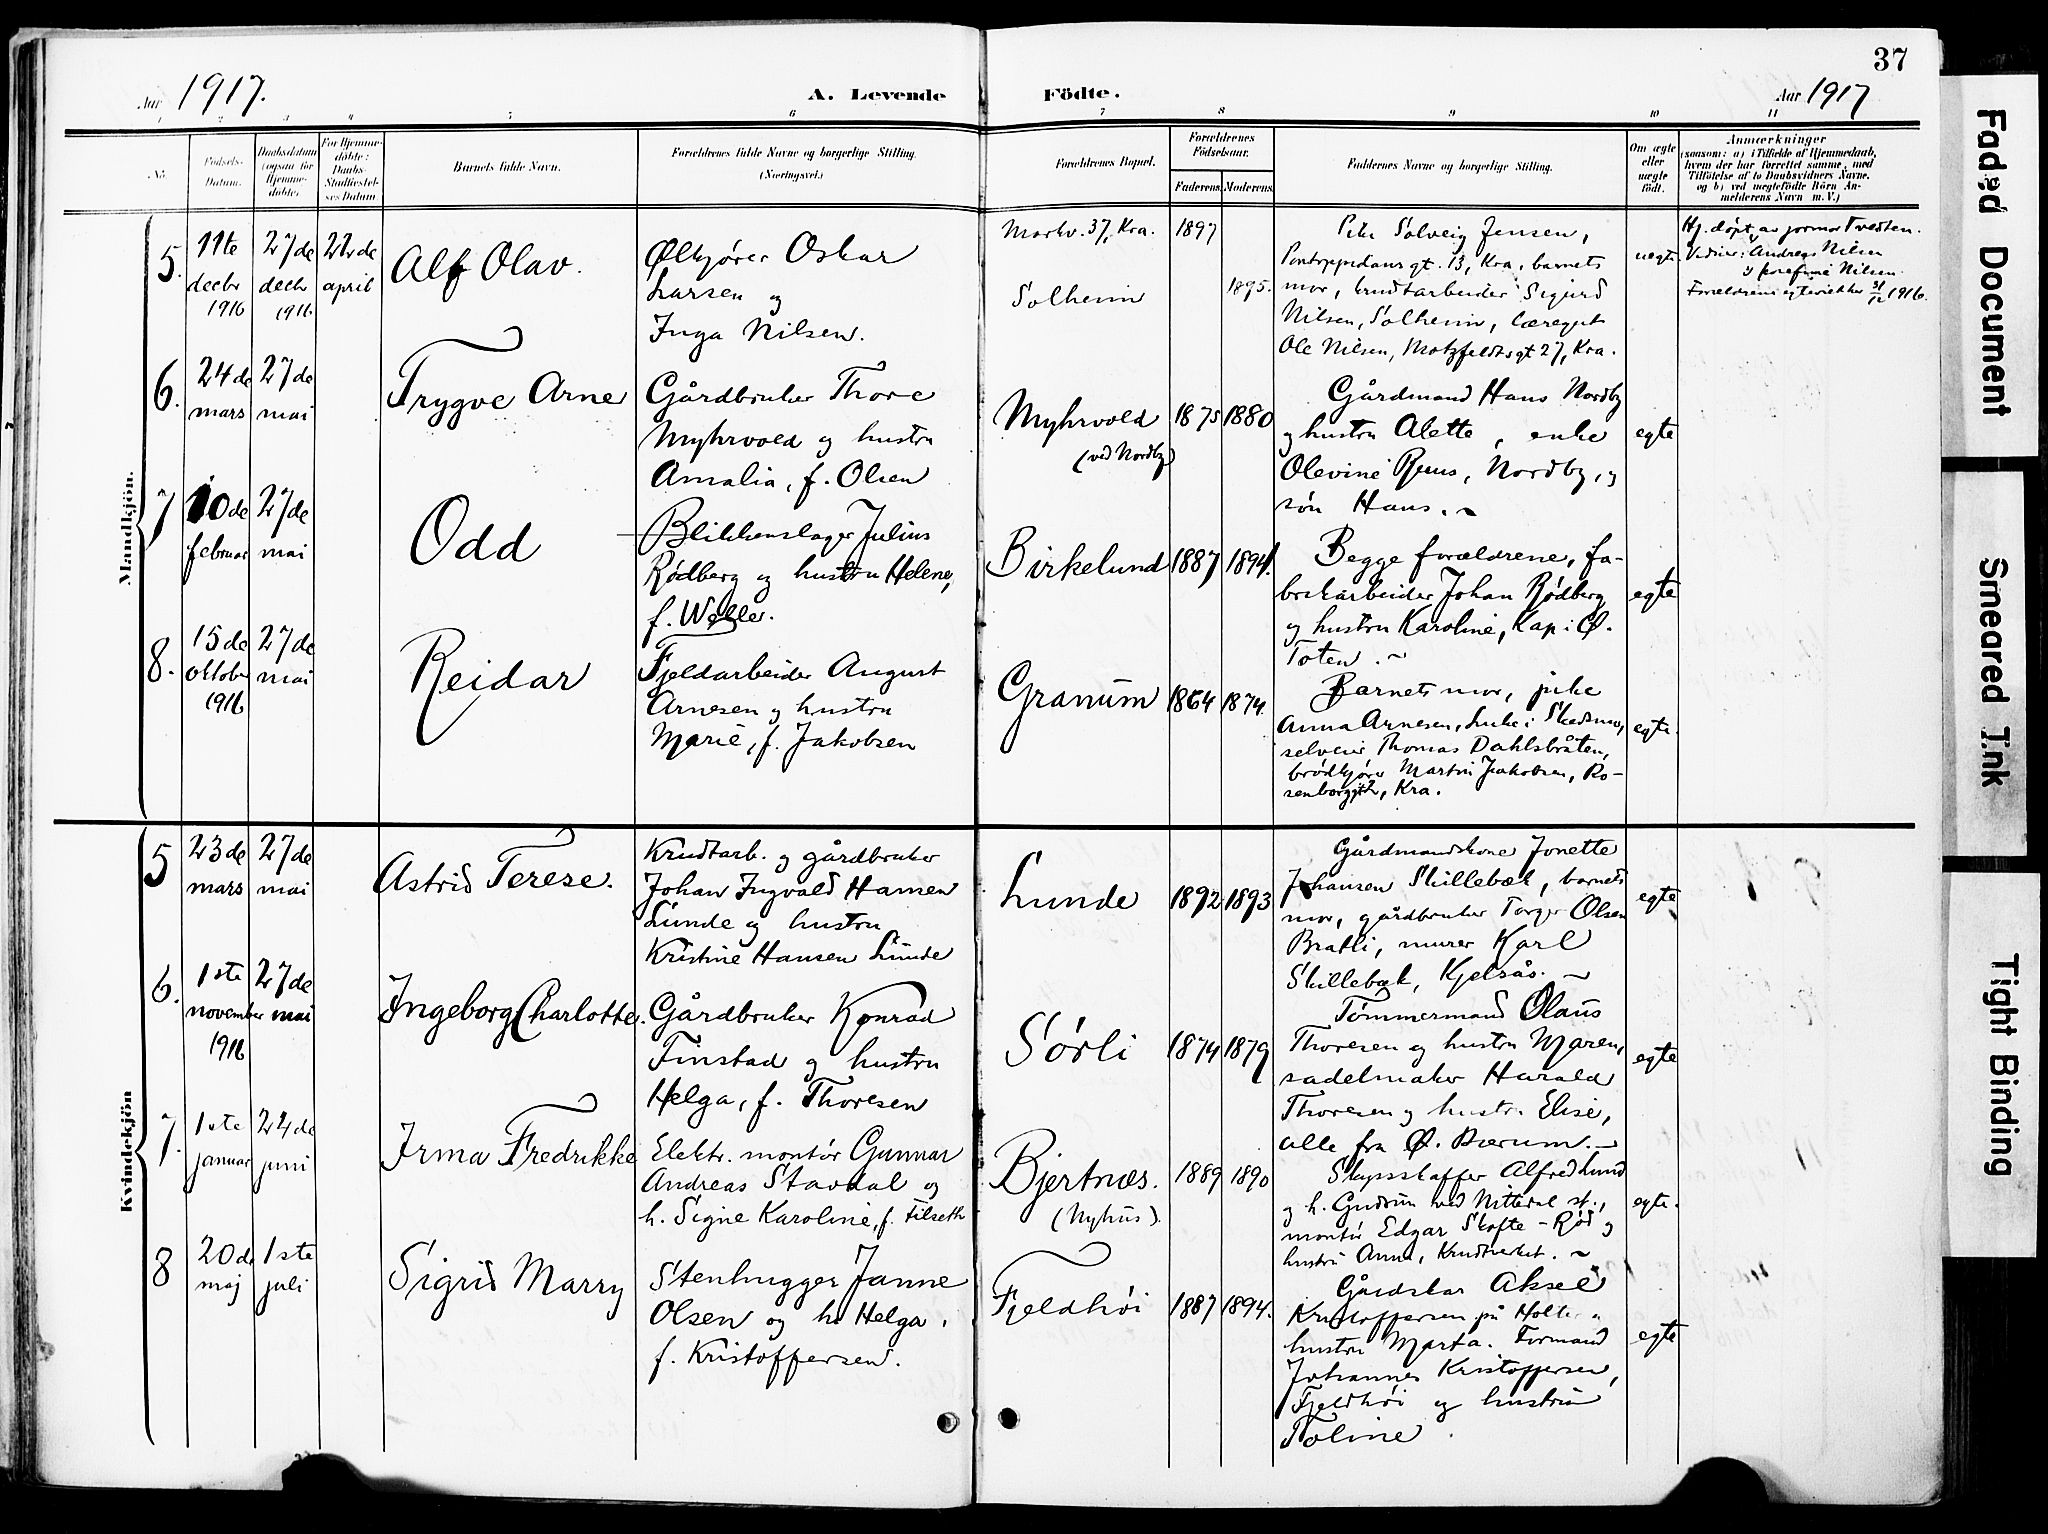 37
Aar 1917.
A. Levende
Födte.
Aar 1917
1 2 3 4 5 6 7 8 9 10 11
No.
Födsels-
Datum.
Daabsdatum
(ogsaa for
Hjemme-
döbte).
For Hjemme-
döbte:
Daabs-
Stadfæstel-
ses Datum
Barnets fulde Navn.
Forældrenes fulde Navne og borgerlige Stilling.
(Næringsvei.)
Forældrenes Bopæl.
Forældrenes
Födselsaar.
Faderens.
Moderens.
Faddernes Navne og borgerlige Stilling.
Om ægte
eller
uægte
födt.
Anmærkninger
(saasom: a) i Tilfælde af Hjemmedaab,
hvem der har forrettet samme, med
Tilföielse af to Daabsvidners Navne.
og b) ved uægtefödte Börn An-
melderens Navn m. V.)
Mandkjön.
5.
11te
decbr
1916
27de
decbr
1916
22de
april
Alf Olav.
Ølkjører Oskar
Larsen og
Inga Nilsen.
Markv. 37, Kra.
Solheim
1897
1895.
Pike Solveig Jensen,
Pontoppidans gt. 13, Kra. barnets
mor, krudtarbeider Sigurd
Nilsen, Solheim, læregut
Ole Nilsen, Motzfeldtsgt 27, Kra.
uegte
Hj. døpt av jormor Tvedten.
Vidner: Andreas Nilsen
og Josefine Nilsen.
Forældrene egteviet her 31/12 1916.
6.
24de
mars
27de
mai
Trygve Arne
Gårdbruker Thore
Myhrvold og hustru
Amalia, f. Olsen
Myhrvold
(ved Nordby)
1875
1880
Gårdmand Hans Nordby
og hustru Alette, enke
Olevine Ruus, Nordby, og
søn Hans. ~
egte
7
10de
februar
27de
mai
Odd
Blikkenslager Julius
Rødberg og hustru Helene,
f. Welle.
Birkelund
1887
1894.
Begge forældrene, fa-
brikarbeider Johan Rødberg
og hustru Karoline, Kap i Ø.
Toten. ~
egte
8.
15de
oktober
1916
27de
mai
Reidar
Fjeldarbeider August
Arnesen og hustru
Marie, f. Jakobsen
Granum
1864
1874.
Barnets mor, pike
Anna Arnesen, Luke i Skedsmo,
selveier Thomas Dahlsbråten,
brødkjører Martin Jakobsen, Ro-
senborggt, Kra.
egte.
Kvindekjön
5
23de
mars
27de
mai
Astrid Terese.
Krudtarb. og gårdbruker
Johan Ingvald Hansen
Lunde og hustru
Kristine Hansen Lunde
Lunde
1892
1893
Gårdmandskone Jonette
Johansen Skillebæk, barnets
mor, gårdbruker Torger Olsen
Bratli, murer Karl
Skillebæk, Kjelsås. ~
egte
6.
1ste
november
1916
27de
mai
Ingeborg Charlotte.
Gårdbruker Konrad
Finstad og hustru
Helga, f. Thoresen
Sørli
1874
1879
Tømmermand Olaus
Thoresen og hustru Maren,
sadelmaker Harald
Thoresen og hustru Elise,
alle fra Ø. Bærum. ~
egte
7.
1ste
januar
24de
juni
Irma Fredrikke
Elektr. montør Gunnar
Andreas Stavdal og
h. Signe Karoline, f. Tilseth
Bjertnæs.
(Nyhus).
1889
1890
Skysskaffer Alfred Lund
og h. Gudrun ved Nittedal st.,
montør Edgar Skofte-Rød og
hustru Anna, Krudtverket. ~
egte.
8
20de
maj
1ste
juli
Sigrid Marry
Stenhugger Janne
Olsen og h. Helga,
f. Kristoffersen.
Fjeldhøi
1887
1894.
Gårdskar Aksel
Kristoffersen på Holter og
hustru Marta. Formand
Johannes Kristoffersen,
Fjeldhøi og hustru
Toline.
egte
Faded Document
Smeared Ink
Tight Binding